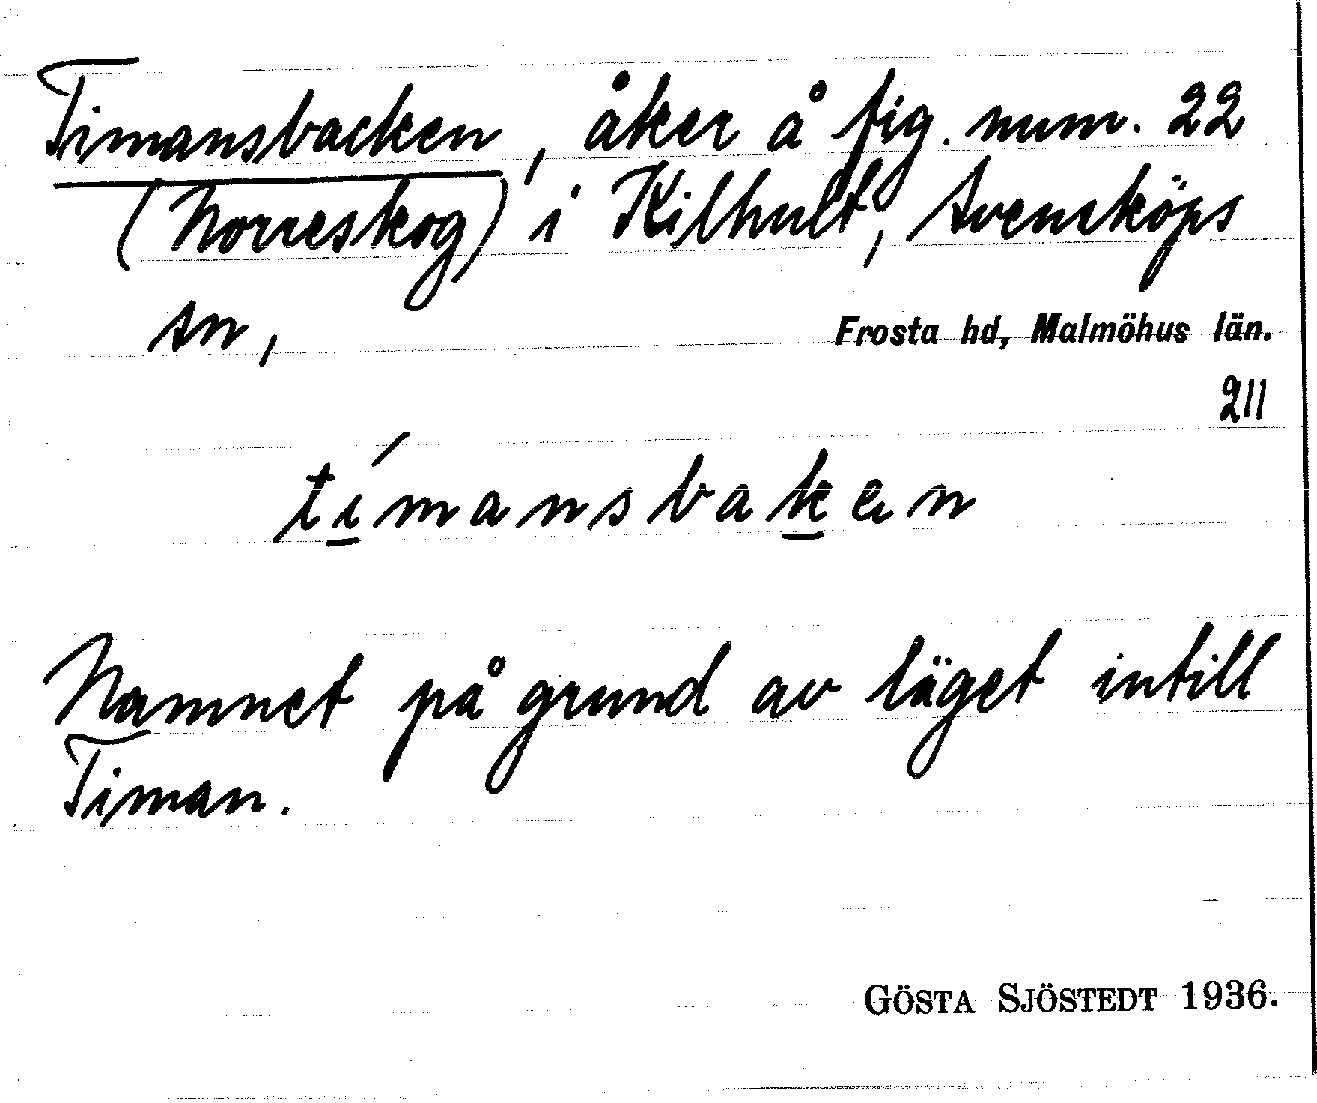 Timansbacken, åker å fig. num. 22
(Norreskog) i Kilhult, Svensköps
sn,
Frosta hd, Malmöhus län.
211
tímansbaken
Namnet på grund av läget intill
Timan.
GÖSTA SJÖSTEDT 1936.